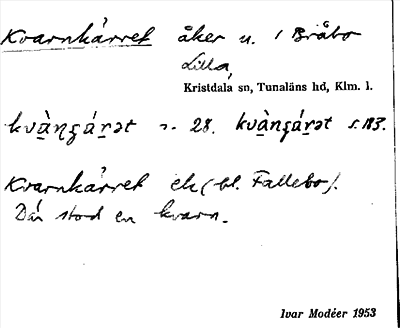 Kvarnkärret åker n. / Bråbo
Lilla,
Kristdala sn, Tunaläns hd, Klm. l.
s. 28. s. 183.
Kvarnkärret ek (bl. Fallebo).
Där stod en kvarn.
Ivar Modéer 1953